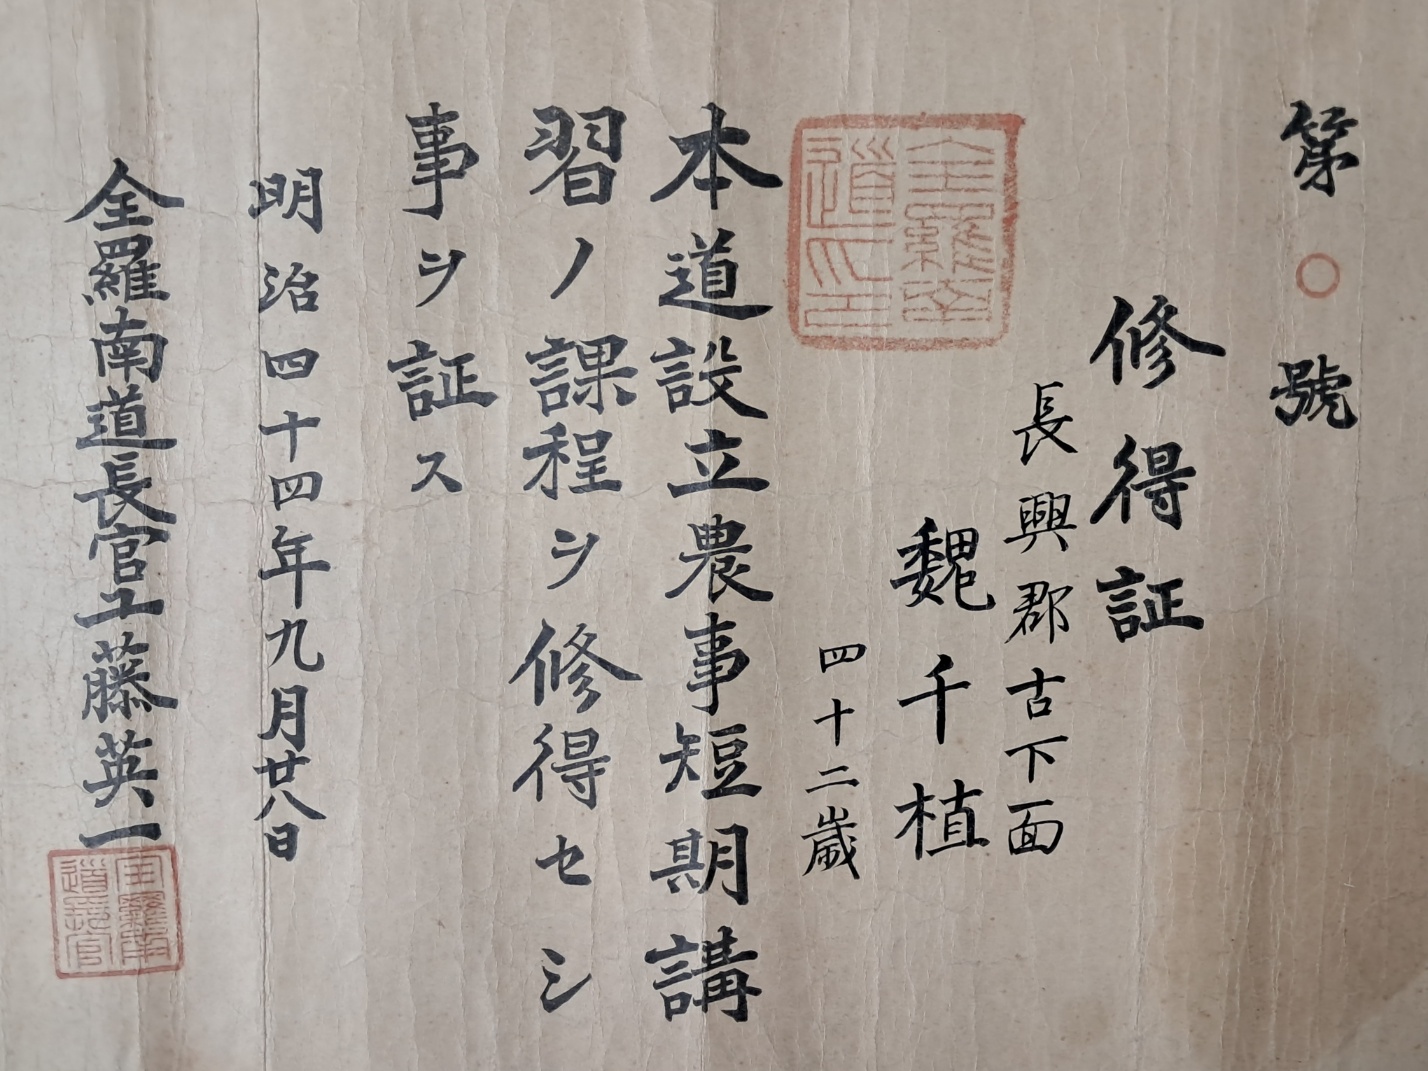 第○號
修得証
長興郡古下面
魏千植
四十二歲
全羅南道之印
本道設立農事短期講
習ノ課程ヲ修得セシ
事ヲ証ス
明治四十四年九月廿八日
全羅南道長官工藤英一
全羅南道長官